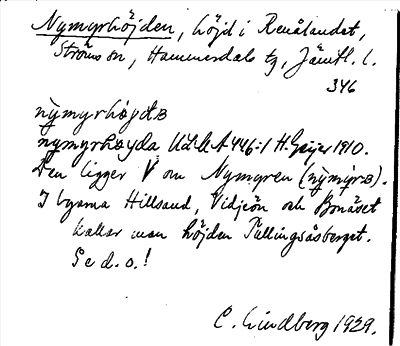 Nymyrhöjden, höjd i Renålandet,
Ströms sn, Hammerdals tg, Jämtl. l.
346
nỳmyrhøjdɞ
nymyrhøyda ULMA 446:1 H. Geijer 1910.
Den ligger V om Nymyren (nỳmỳrɞ).
I byarna Hillsand, Vidjeön och Bonäset
kallar man höjden Tullingsåsberget.
Se d. o.!
C. Lindberg 1929.